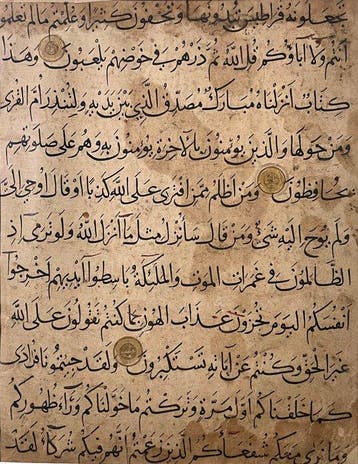 تجعلونه قراطيس تبدونها وتخفون كثيرا وعلمتم ما لم تعلموا
أنتم ولا آباؤكم قل الله ثم ذرهم في خوضهم يلعبون وهذا
كتاب أنزلناه مبارك مصدق الذي بين يديه ولتنذر أم القرى
ومن حولها والذين يؤمنون بالآخرة يؤمنون به وهم على صلوتهم
يحافظون ومن أظلم ممن افترى على الله كذبا أو قال أوحي إلي
ولم يوح إليه شيء ومن قال سأنزل مثل ما أنزل الله ولو ترى إذ
الظالمون في غمرات الموت والملئكة باسطوا أيديهم أخرجوا
أنفسكم اليوم تجزون عذاب الهون بما كنتم تقولون على الله
غير الحق وكنتم عن آياته تستكبرون ولقد جئتمونا فرادى
كما خلقناكم أول مرة وتركتم ما خولناكم وراء ظهوركم
وما نرى معكم شفعاءكم الذين زعمتم أنهم فيكم شركاء لقد